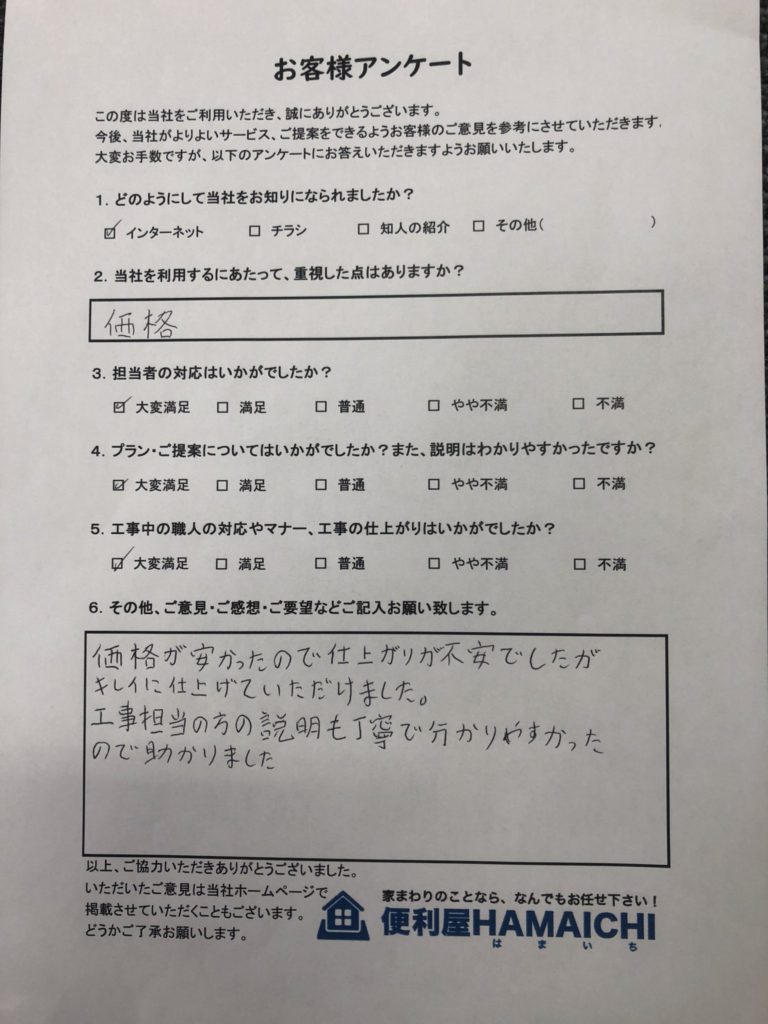 お客様アンケート
この度は当社をご利用いただき、誠にありがとうございます。
今後、当社がよりよいサービス、ご提案をできるようお客様のご意見を参考にさせていただきます。
大変お手数ですが、以下のアンケートにお答えいただきますようお願いいたします。
1. どのようにして当社をお知りになられましたか？
☑ インターネット □ チラシ □ 知人の紹介 □ その他( )
2. 当社を利用するにあたって、重視した点はありますか？
価格
3. 担当者の対応はいかがでしたか？
☑ 大変満足 □ 満足 □ 普通 □ やや不満 □ 不満
4. プラン・ご提案についてはいかがでしたか？また、説明はわかりやすかったですか？
☑ 大変満足 □ 満足 □ 普通 □ やや不満 □ 不満
5. 工事中の職人の対応やマナー、工事の仕上がりはいかがでしたか？
☑ 大変満足 □ 満足 □ 普通 □ やや不満 □ 不満
6. その他、ご意見・ご感想・ご要望などご記入お願い致します。
価格が安かったので仕上がりが不安でしたが
キレイに仕上げていただけました。
工事担当の方の説明も丁寧で分かりやすかった
ので助かりました
以上、ご協力いただきありがとうございました。
いただいたご意見は当社ホームページで
掲載させていただくこともございます。
どうかご了承お願いします。
家まわりのことなら、なんでもお任せ下さい！
便利屋HAMAICHI
はまいち